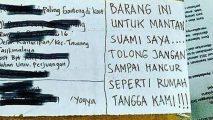 Paling Ganteng di kost
16
Kec. Tawang
Tasikmalaya
Perjuangan
BARANG INI
UNTUK MANTAN
SUAMI SAYA....
TOLONG JANGAN
SAMPAI HANCUR
SEPERTI RUMAH
TANGGA KAMI!!!